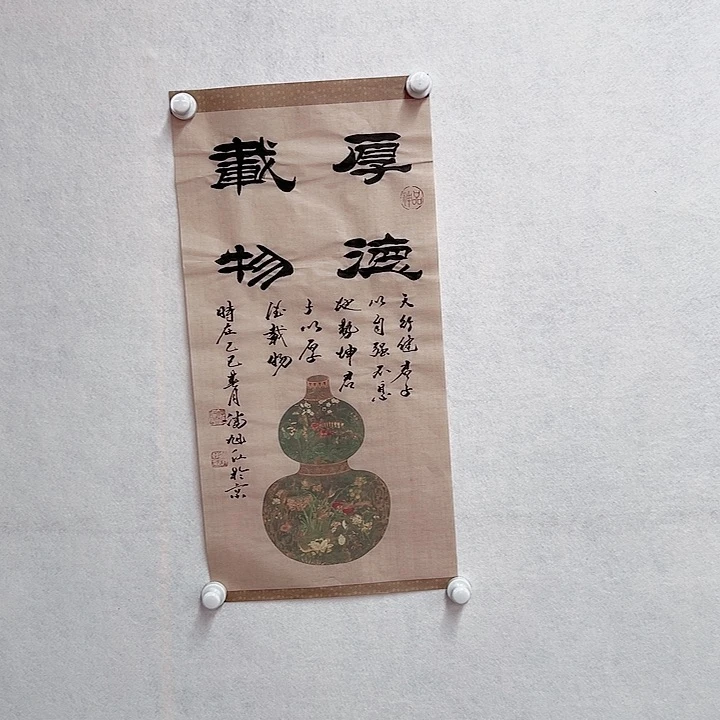 厚德
載物
天行健君子
以自强不息
地勢坤君
子以厚
德載物
時在乙巳春月
旭江於京